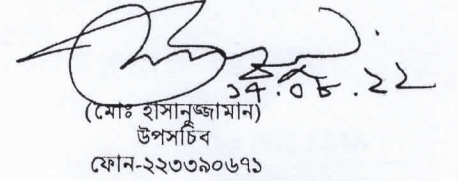 ১৭.০৮.২২
(মোঃ হাসানুজ্জামান)
উপসচিব
ফোন-২২৩৩৯০৬৭১